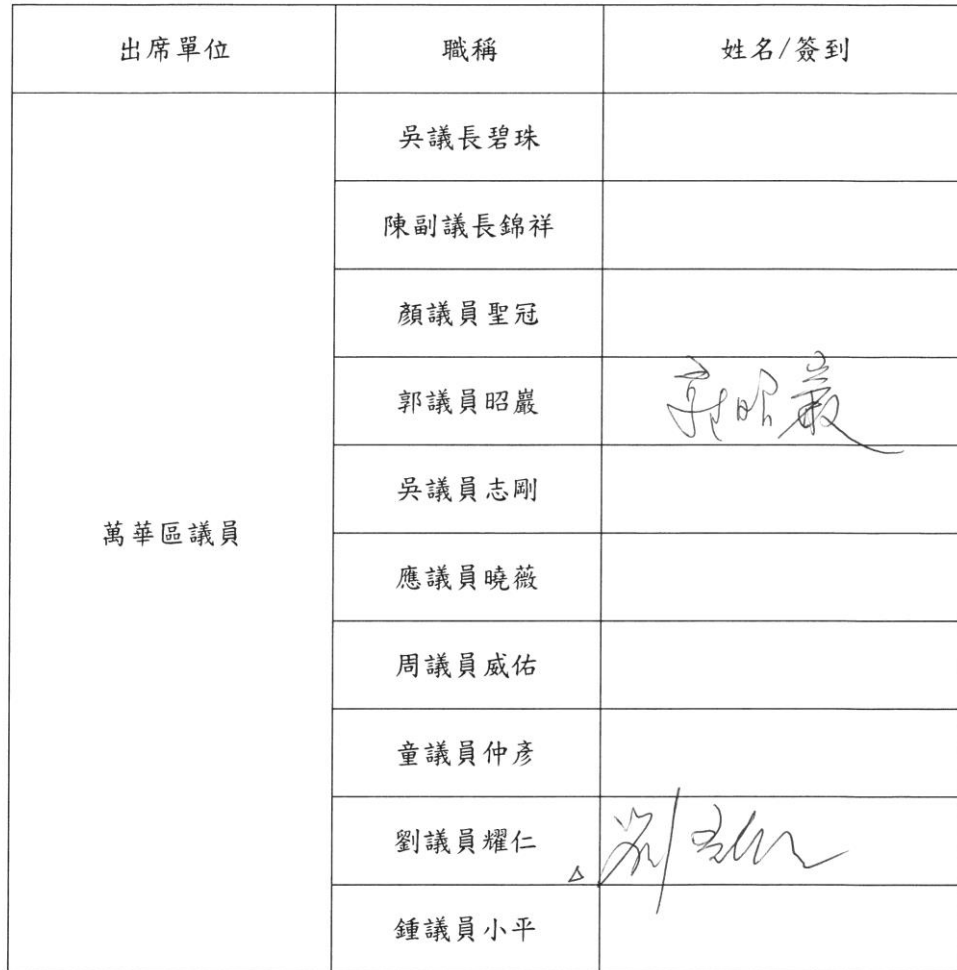 出席單位 職稱 姓名/簽到
萬華區議員
吳議長碧珠
陳副議長錦祥
顏議員聖冠
郭議員昭巖 郭昭巖
吳議員志剛
應議員曉薇
周議員威佑
童議員仲彥
劉議員耀仁
鍾議員小平